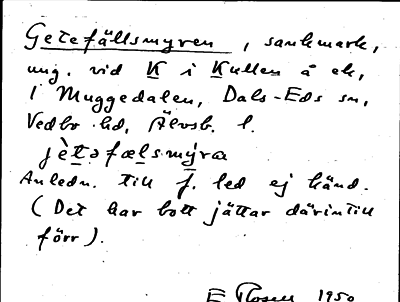 Getefällsmyren, sankmark,
ung. vid K i Kullen å ek,
i Muggedalen, Dals-Eds sn,
Vedbo hd, Älvsb. l.
jètəfælsmýra
Anledn. till f. led ej känd.
(Det har bott jättar därintill
förr).
E Rosell 1950